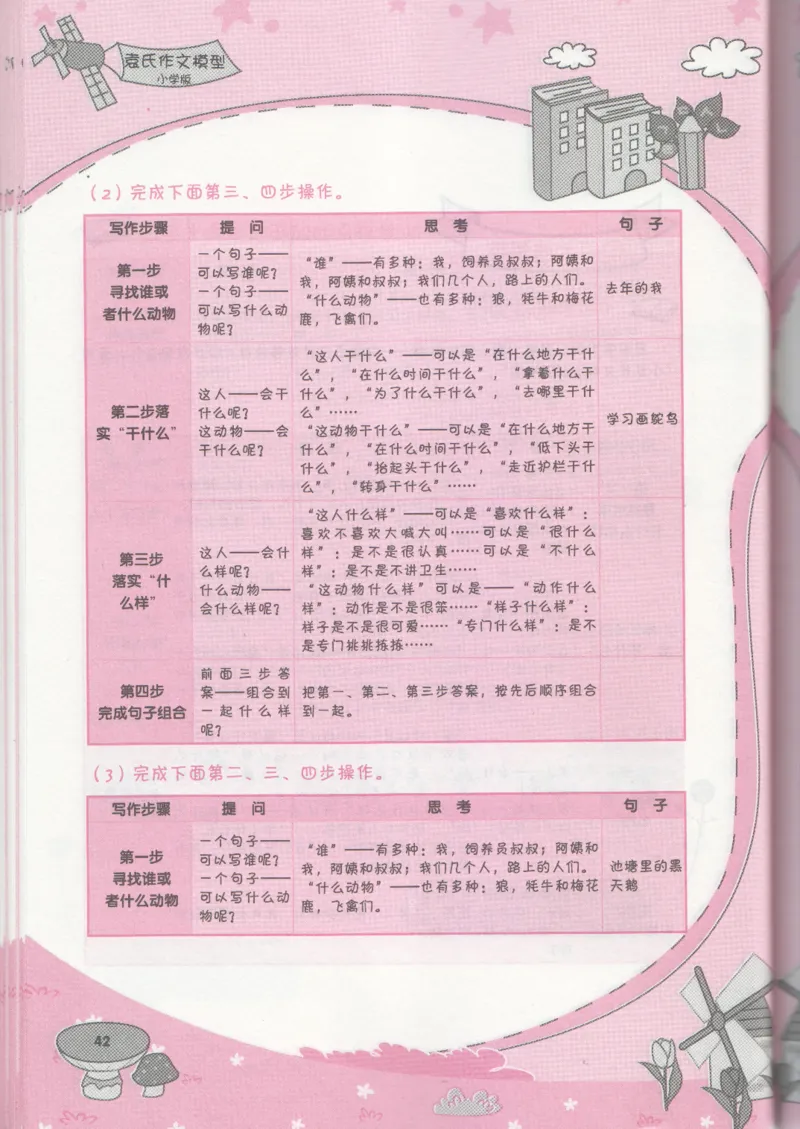 袁氏作文模型
小学版
（2）完成下面第三、四步操作。
写作步骤 提 问 思 考 句 子
第一步
寻找谁或
者什么动物
一个句子——
可以写谁呢？
一个句子——
可以写什么动
物呢？
“谁”——有多种：我，饲养员叔叔；阿姨和
我，阿姨和叔叔；我们几个人，路上的人们。
“什么动物”——也有多种：狼，牦牛和梅花
鹿，飞禽们。
去年的我
第二步落
实“干什么”
这人——会干
什么呢？
这动物——会
干什么呢？
“这人干什么”——可以是“在什么地方干什
么”，“在什么时间干什么”，“拿着什么干
什么”，“为了什么干什么”，“去哪里干什
么”……
“这动物干什么”——可以是“在什么地方干
什么”，“在什么时间干什么”，“低下头干
什么”，“抬起头干什么”，“走近护栏干什
么”，“转身干什么”……
学习画鸵鸟
第三步
落实“什
么样”
这人——会什
么样呢？
什么动物——
会什么样呢？
“这人什么样”——可以是“喜欢什么样”：
喜欢不喜欢大喊大叫……可以是“很什么
样”：是不是很认真……可以是“不什么
样”：是不是不讲卫生……
“这动物什么样”可以是——“动作什么
样”：动作是不是很笨……“样子什么样”：
样子是不是很可爱……“专门什么样”：是不
是专门挑挑拣拣……
第四步
完成句子组合
前面三步答
案——组合到
一起什么样
呢？
把第一、第二、第三步答案，按先后顺序组合
到一起。
（3）完成下面第二、三、四步操作。
写作步骤 提 问 思 考 句 子
第一步
寻找谁或
者什么动物
一个句子——
可以写谁呢？
一个句子——
可以写什么动
物呢？
“谁”——有多种：我，饲养员叔叔；阿姨和
我，阿姨和叔叔；我们几个人，路上的人们。
“什么动物”——也有多种：狼，牦牛和梅花
鹿，飞禽们。
池塘里的黑
天鹅
42